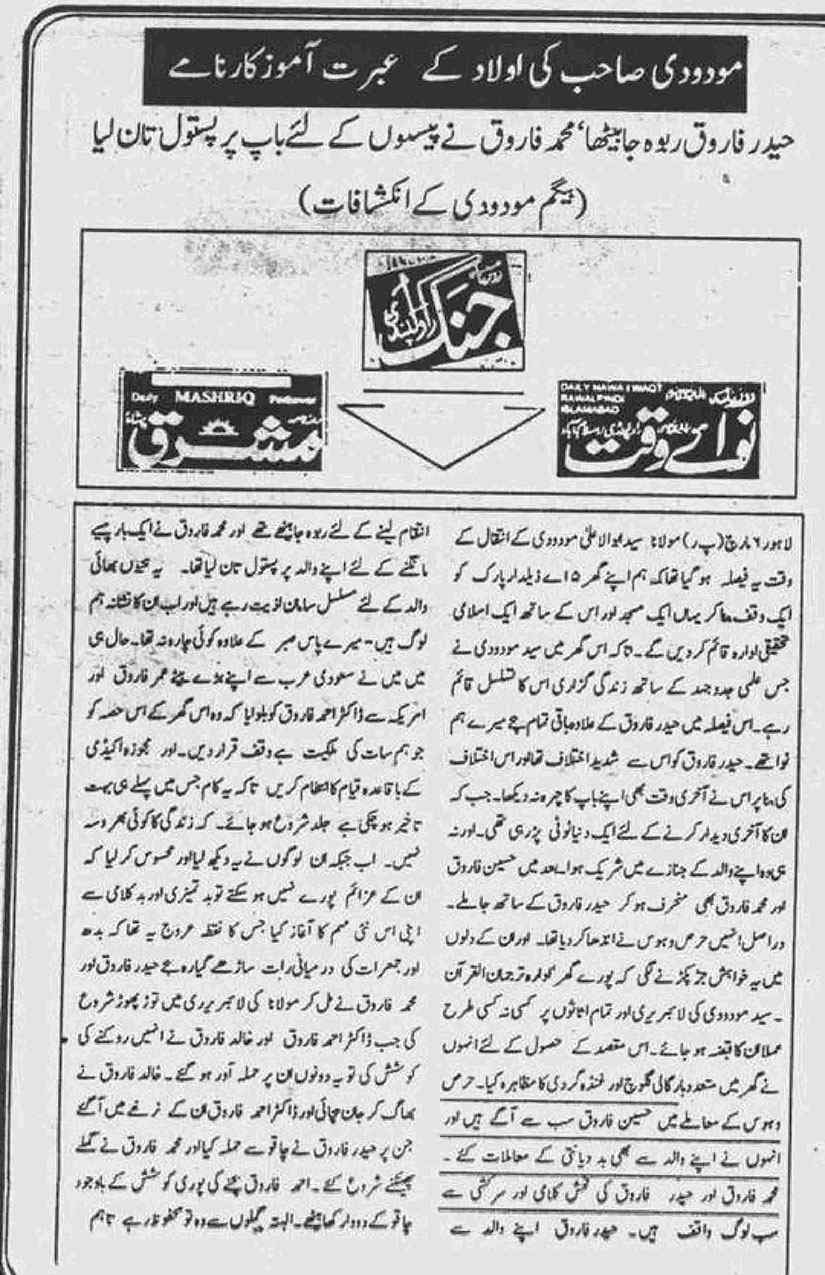 مودودی صاحب کی اولاد کے عبرت آموز کارنامے
حیدر فاروق ربوہ جا بیٹھا، محمد فاروق نے پیسوں کے لئے باپ پر پستول تان لیا
(بیگم مودودی کے انکشافات)
جنگ
راولپنڈی
Daily MASHRIQ Peshawar
مشرق
DAILY NAWA I WAQT
RAWALPINDI
ISLAMABAD
نوائے وقت
لاہور ۶ مارچ (پ ر) مولانا سید ابوالاعلیٰ مودودی کے انتقال کے
وقت یہ فیصلہ ہو گیا تھا کہ ہم اپنے گھر ۵ اے ذیلدار پارک کو
ایک وقف بنا کر یہاں ایک مسجد اور اس کے ساتھ ایک اسلامی
تحقیقی ادارہ قائم کر دیں گے۔ تاکہ اس گھر میں سید مودودی نے
جس علمی جدوجہد کے ساتھ زندگی گزاری اس کا تسلسل قائم
رہے۔ اس فیصلہ میں حیدر فاروق کے علاوہ باقی تمام بچے میرے ہم
نوا تھے۔ حیدر فاروق کو اس سے شدید اختلاف تھا اور اس اختلاف
کی بنا پر اس نے آخری وقت بھی اپنے باپ کا چہرہ نہ دیکھا۔ جب کہ
ان کا آخری دیدار کرنے کے لئے ایک دنیا ٹوٹی پڑ رہی تھی۔ اور نہ
ہی وہ اپنے والد کے جنازے میں شریک ہوا بعد میں حسین فاروق
اور محمد فاروق بھی منحرف ہو کر حیدر فاروق کے ساتھ جا ملے۔
دراصل انہیں حرص و ہوس نے اندھا کر دیا تھا۔ اور ان کے دلوں
میں یہ خواہش جڑ پکڑنے لگی کہ پورے گھر ادارہ ترجمان القرآن
۔ سید مودودی کی لائبریری اور تمام اثاثوں پر کسی نہ کسی طرح
عملا ان کا قبضہ ہو جائے۔ اس مقصد کے حصول کے لئے انہوں
نے گھر میں متعدد بار گالی گلوچ اور غنڈہ گردی کا مظاہرہ کیا۔ حرص
وہوس کے معاملے میں حسین فاروق سب سے آگے ہیں اور
انہوں نے اپنے والد سے بھی بد دیانتی کے معاملات کئے۔
محمد فاروق اور حیدر فاروق کی فحش کلامی اور سرکشی سے
سب لوگ واقف ہیں۔ حیدر فاروق اپنے والد سے
انتقام لینے کے لئے ربوہ جا بیٹھے تھے اور محمد فاروق نے ایک بار پیسے
مانگنے کے لئے اپنے والد پر پستول تان لیا تھا۔ یہ تینوں بھائی
والد کے لئے مسلسل سامان اذیت رہے ہیں اور اب ان کا نشانہ ہم
لوگ ہیں۔ میرے پاس صبر کے علاوہ کوئی چارہ نہ تھا۔ حال ہی
میں میں نے سعودی عرب سے اپنے بڑے بیٹے عمر فاروق اور
امریکہ سے ڈاکٹر احمد فاروق کو بلوایا کہ وہ اس گھر کے اس حصہ کو
جو ہم سات کی ملکیت ہے وقف قرار دیں۔ اور مجوزہ اکیڈمی
کے باقاعدہ قیام کا انتظام کریں تاکہ یہ کام جس میں پہلے ہی بہت
تاخیر ہو چکی ہے جلد شروع ہو جائے۔ کہ زندگی کا کوئی بھروسہ
نہیں۔ اب جبکہ ان لوگوں نے یہ دیکھ لیا اور محسوس کر لیا کہ
ان کے عزائم پورے نہیں ہو سکتے تو بد تمیزی اور بد کلامی سے
اپنی اس نئی مہم کا آغاز کیا جس کا نقطہ عروج یہ تھا کہ بدھ
اور جمعرات کی درمیانی رات ساڑھے گیارہ بجے حیدر فاروق اور
محمد فاروق نے مل کر مولانا کی لائبریری میں توڑ پھوڑ شروع
کی جب ڈاکٹر احمد فاروق اور خالد فاروق نے انہیں روکنے کی
کوشش کی تو یہ دونوں ان پر حملہ آور ہو گئے۔ خالد فاروق نے
بھاگ کر جان بچائی اور ڈاکٹر احمد فاروق ان کے نرغے میں آ گئے
جن پر حیدر فاروق نے چاقو سے حملہ کیا اور محمد فاروق نے گملے
پھینکنے شروع کئے۔ احمد فاروق بچنے کی پوری کوشش کے باوجود
چاقو کے دو وار کھا بیٹھے۔ البتہ گملوں سے وہ تو محفوظ رہے تاہم